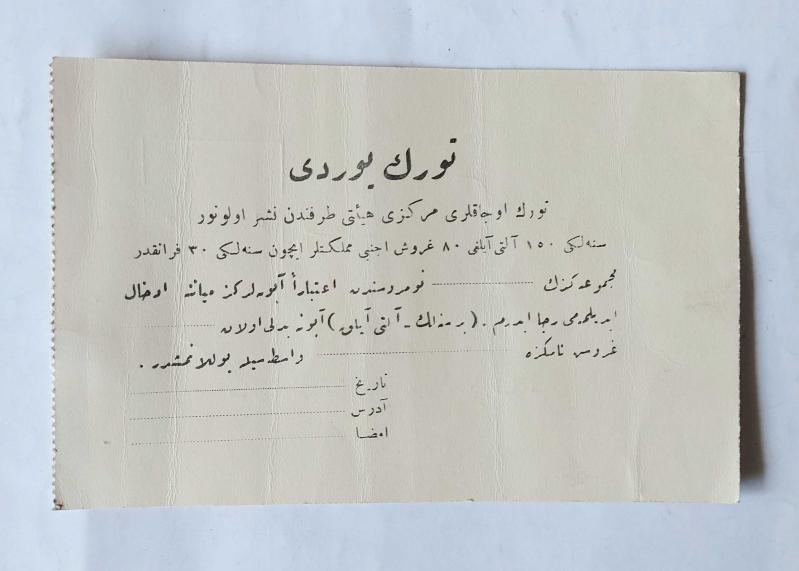 تورك یوردی
تورك اوجاقلری مركزی هیأتی طرفندن نشر اولونور
سنه‌لكی ١٥٠ آلتی آیلغی ٨٠ غروش اجنبی مملكتلر ایچون سنه‌لكی ٣٠ فرانقدر
مجموعه كزك ............ نومروسندن اعتباراً آبونه‌لركز میاننه ادخال
ایدیلمه‌می رجا ایدرم . ( بر سنه‌لك - آلتی آیلق ) آبونه بدلی اولان ............
غروش نامكزه ............ واسطه‌سیله یوللانمشدر .
تاریخ ............
آدرس ............
امضا ............